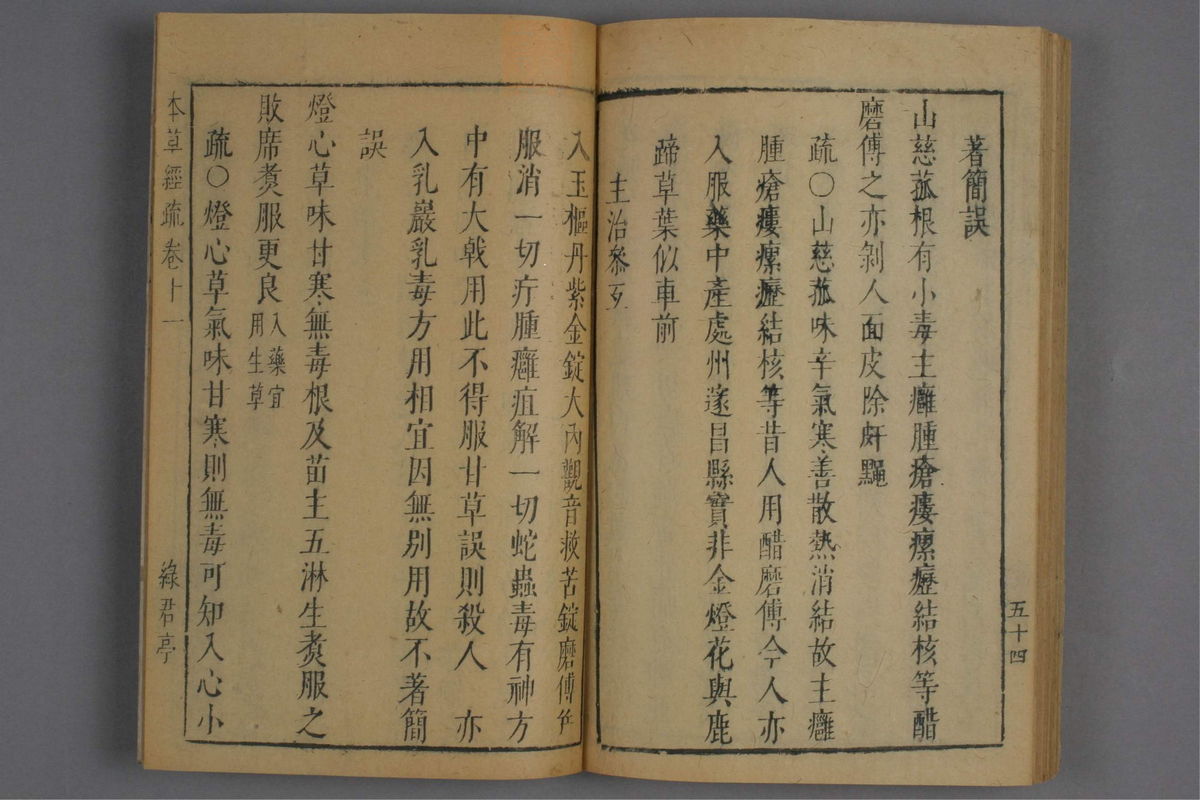 著簡誤
山慈菰根有小毒主癰腫瘡瘻瘰癧結核等醋
磨傅之亦剝人面皮除皯䵳
疏○山慈菰味辛氣寒善散熱消結故主癰
腫瘡瘻瘰癧結核等昔人用醋磨傅今人亦
入服藥中產處州遂昌縣實非金燈花與鹿
蹄草葉似車前
主治參互
五十四
入玉樞丹紫金錠大內觀音救苦錠磨傅并
服消一切疔腫癰疽解一切蛇蟲毒有神方
中有大戟用此不得服甘草誤則殺人 亦
入乳巖乳毒方用相宜因無别用故不著簡
誤
燈心草味甘寒無毒根及苗主五淋生煑服之
敗席煑服更良入藥宜用生草
疏○燈心草氣味甘寒則無毒可知入心小
本草經疏卷十一
綠君亭